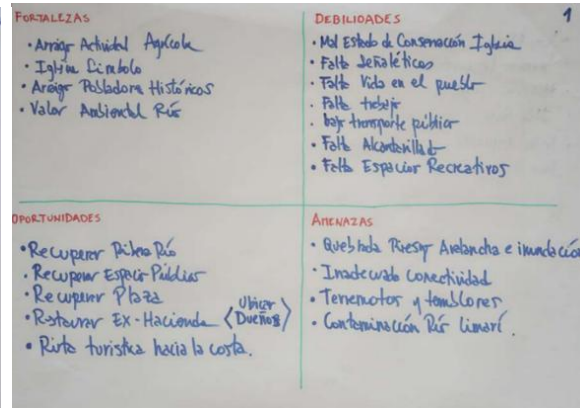 FORTALEZAS
• Arraigo Actividad Agrícola
• Iglesia Símbolo
• Arraigo Pobladores Históricos
• Valor Ambiental Río
DEBILIDADES
1
• Mal Estado de Conservación Iglesia
• Falta Señaléticas
• Falta Vida en el pueblo
• Falta trabajo
• bajo transporte público
• Falta Alcantarillado
• Falta Espacios Recreativos
OPORTUNIDADES
• Recuperar Ribera Río
• Recuperar Espacio Público
• Recuperar Plaza
• Restaurar Ex-Hacienda <Ubicar Dueños>
• Ruta turistica hacia la costa.
AMENAZAS
• Quebrada Riesgo Avalancha e inundación
• Inadecuada conectividad
• Terremotos y temblores
• Contaminación Río Limarí.